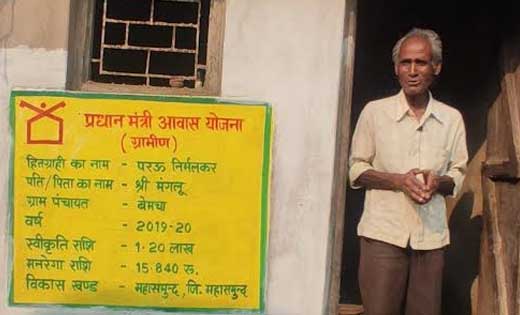 प्रधान मंत्री आवास योजना
(ग्रामीण)
हितग्राही का नाम - परऊ निर्मलकर
पति/पिता का नाम - श्री मंगलू
ग्राम पंचायत - बेमचा
वर्ष - 2019-20
स्वीकृति राशि - 1.20 लाख
मनरेगा राशि - 15.840 रु.
विकास खण्ड - महासमुन्द, जि. महासमुन्द